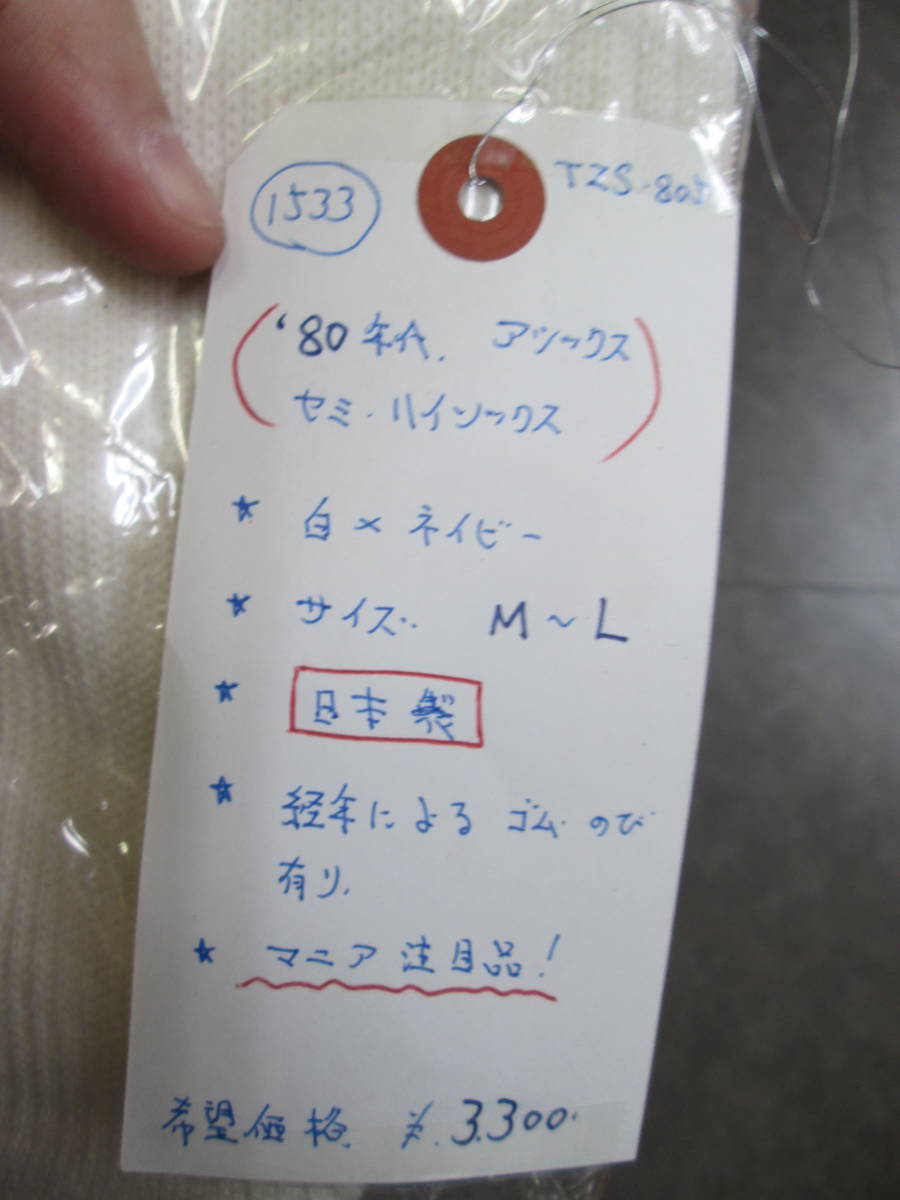 1533
TZS-805
'80年代. アシックス
セミ・ハイソックス
★ 白×ネイビー
★ サイズ.. M～L
★ 日本製
★ 経年によるゴムのび
有り.
★ マニア注目品!
希望価格. ¥.3.300.